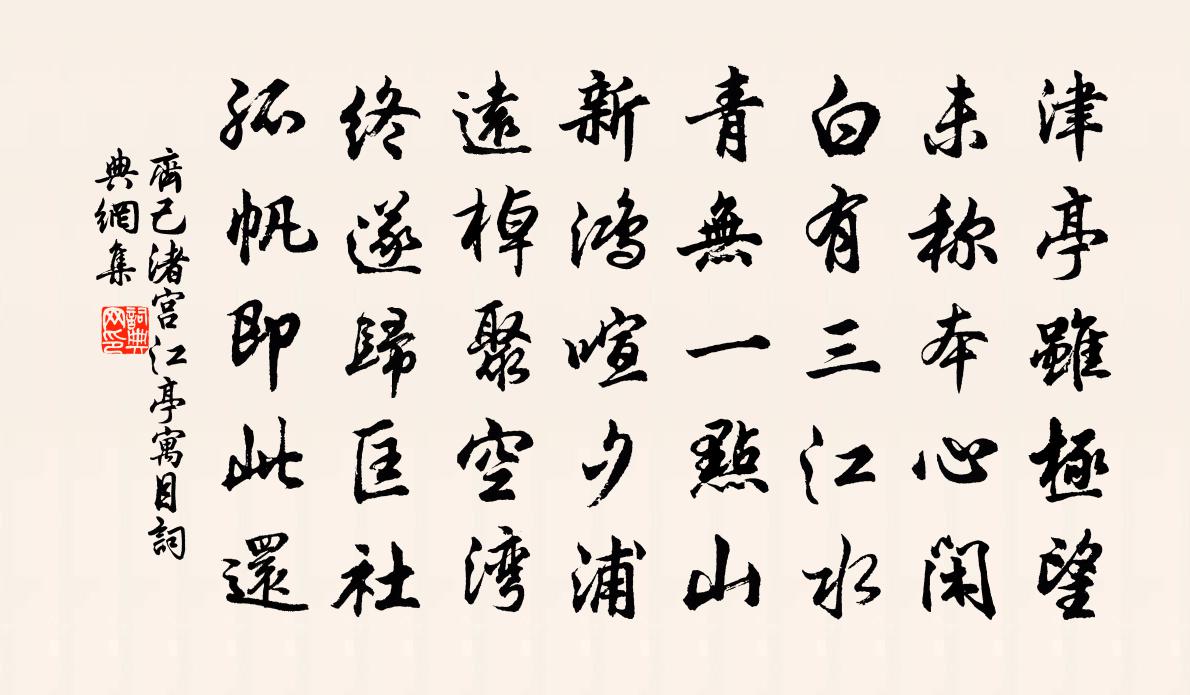 津亭雖極望
未称本心闲
白有三江水
青無一點山
新鴻喧夕浦
遠棹聚空湾
終遂歸匡社
孤帆即此還
齊己渚宫江亭寓目詞
典網集
詞典
网印